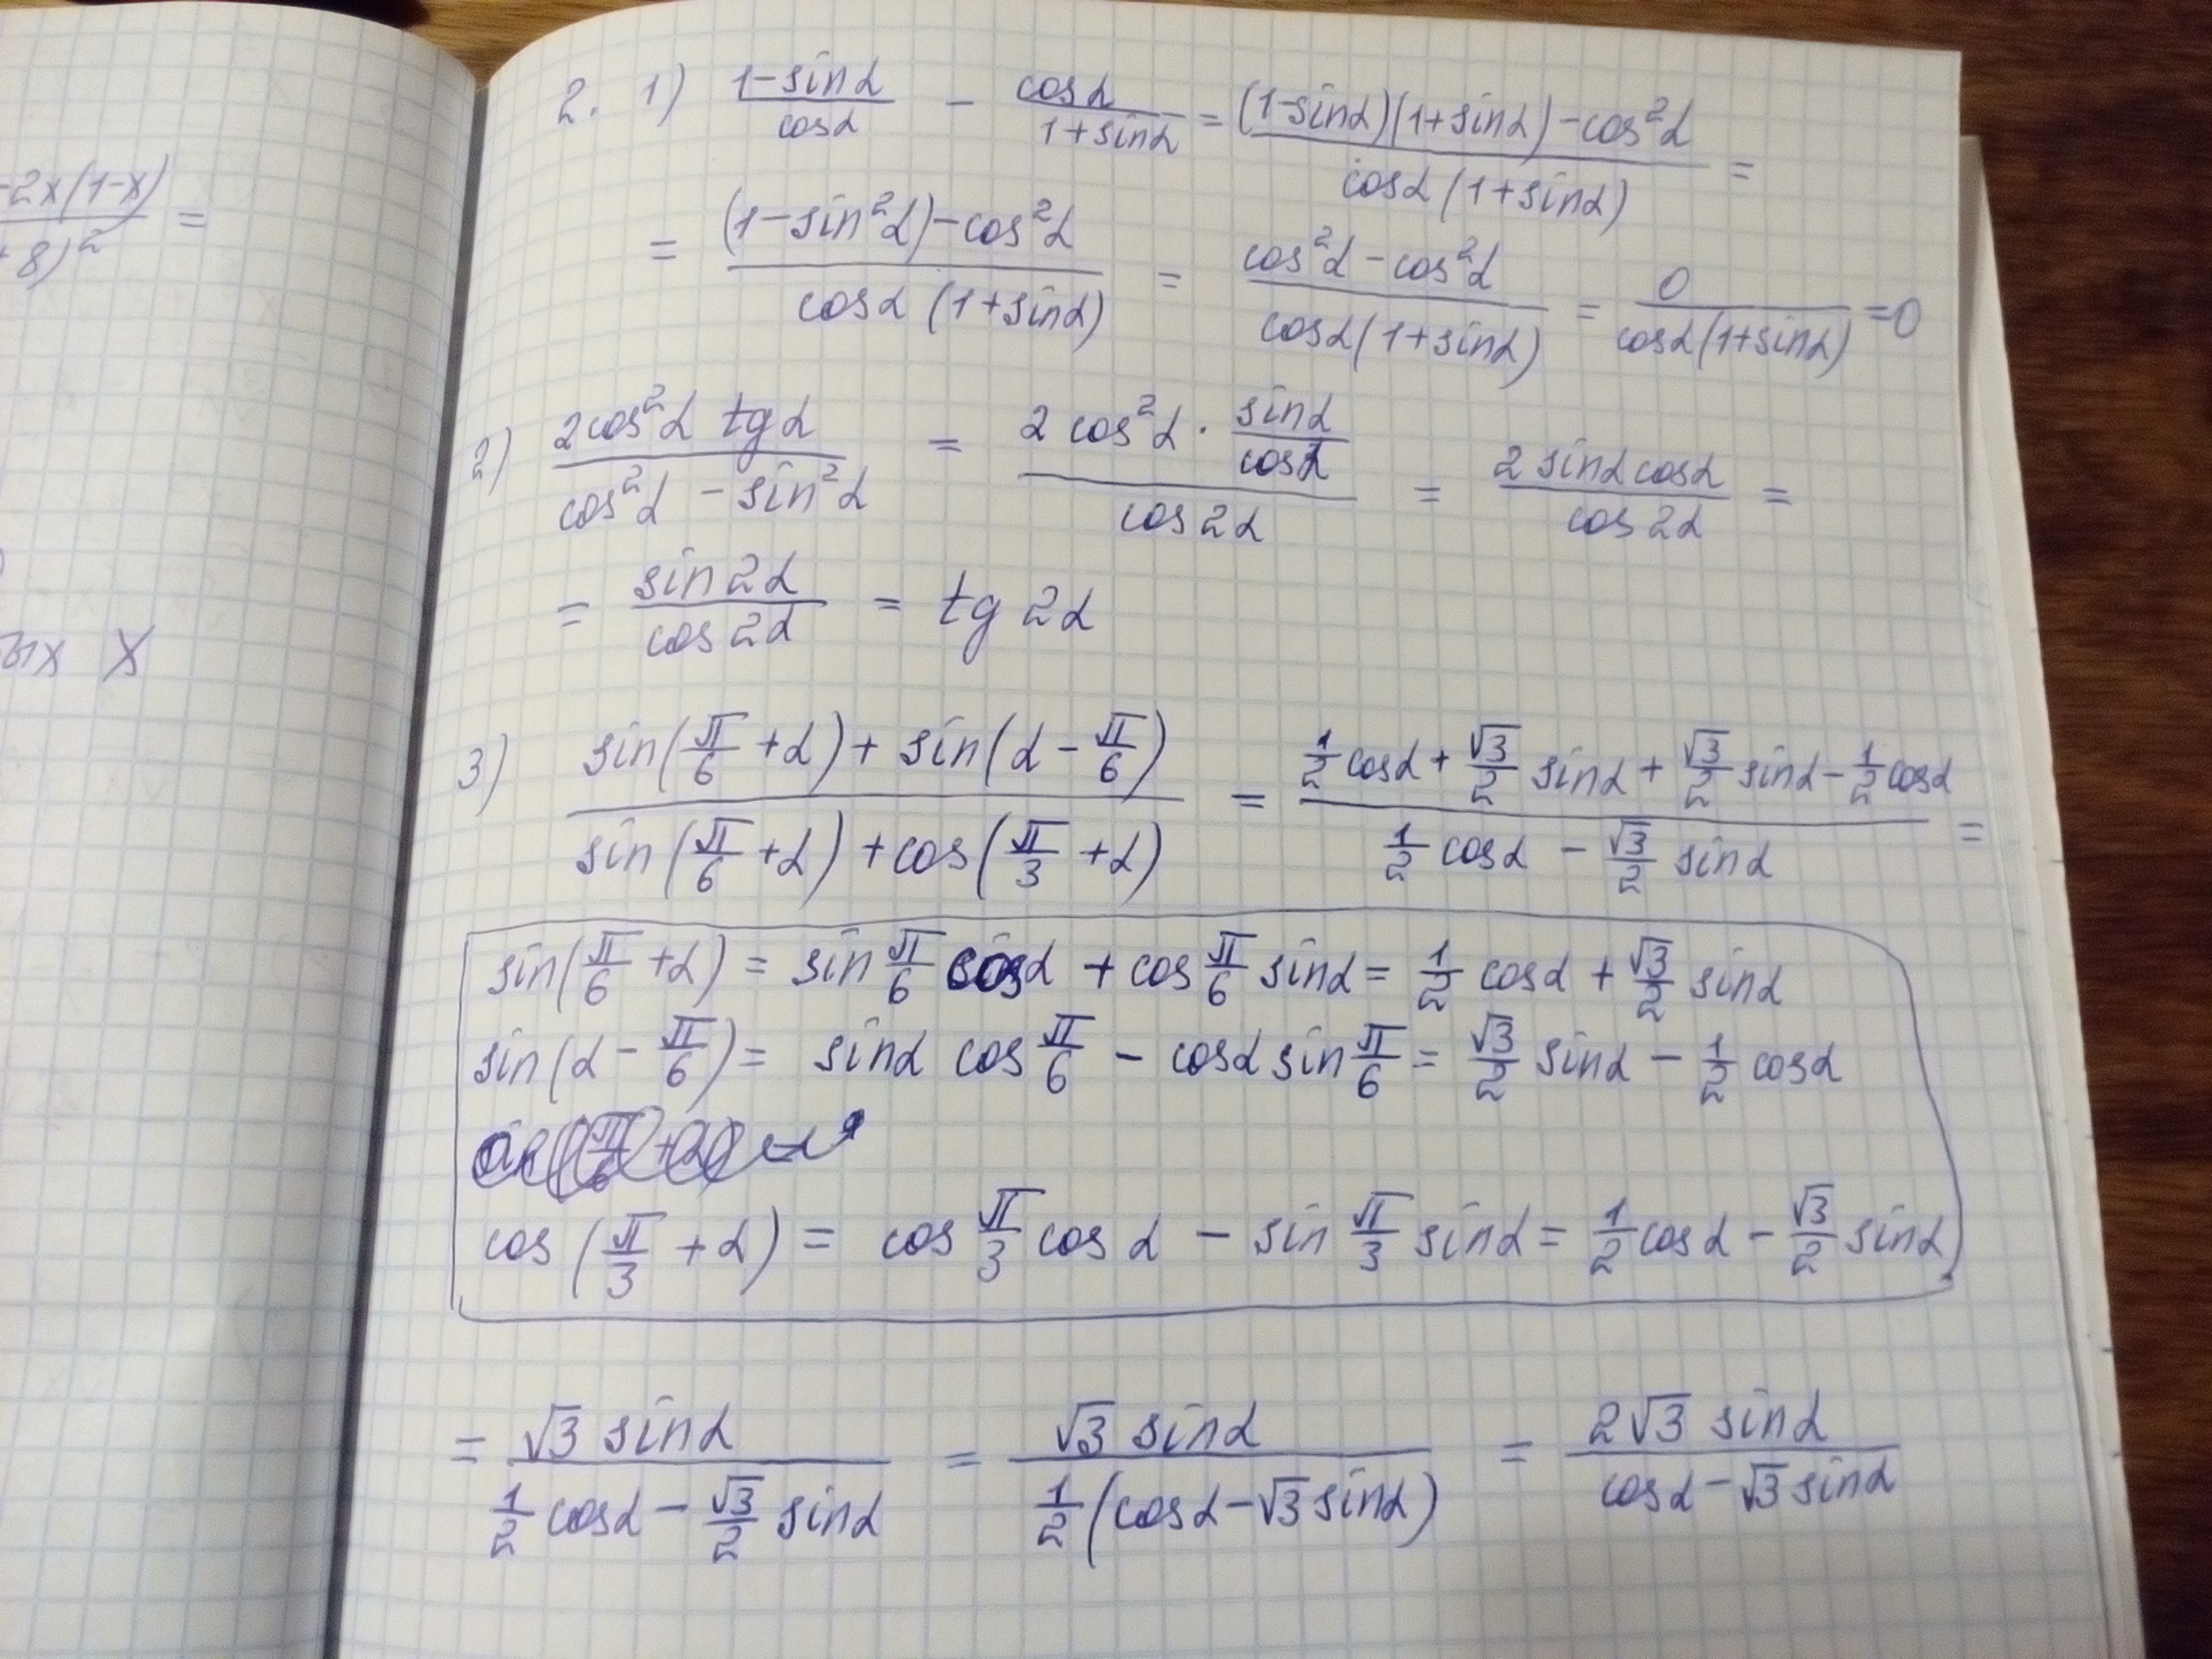 -2x(1-x) / +8)² =
x
2. 1) (1-sinα)/cosα - cosα/(1+sinα) = ((1-sinα)(1+sinα)-cos²α)/(cosα(1+sinα)) =
= ((1-sin²α)-cos²α)/(cosα(1+sinα)) = (cos²α-cos²α)/(cosα(1+sinα)) = 0/(cosα(1+sinα)) = 0
2) (2cos²α tgα)/(cos²α - sin²α) = (2cos²α · sinα/cosα)/(cos2α) = (2sinα cosα)/(cos2α) =
= sin2α/cos2α = tg2α
3) (sin(π/6 + α) + sin(α - π/6))/(sin(π/6 + α) + cos(π/3 + α)) = (1/2 cosα + √3/2 sinα + √3/2 sinα - 1/2 cosα)/(1/2 cosα - √3/2 sinα) =
sin(π/6 + α) = sin π/6 cosα + cos π/6 sinα = 1/2 cosα + √3/2 sinα
sin(α - π/6) = sinα cos π/6 - cosα sin π/6 = √3/2 sinα - 1/2 cosα
cos(π/3 + α) = cos π/3 cosα - sin π/3 sinα = 1/2 cosα - √3/2 sinα
= (√3 sinα)/(1/2 cosα - √3/2 sinα) = (√3 sinα)/(1/2(cosα - √3 sinα)) = (2√3 sinα)/(cosα - √3 sinα)